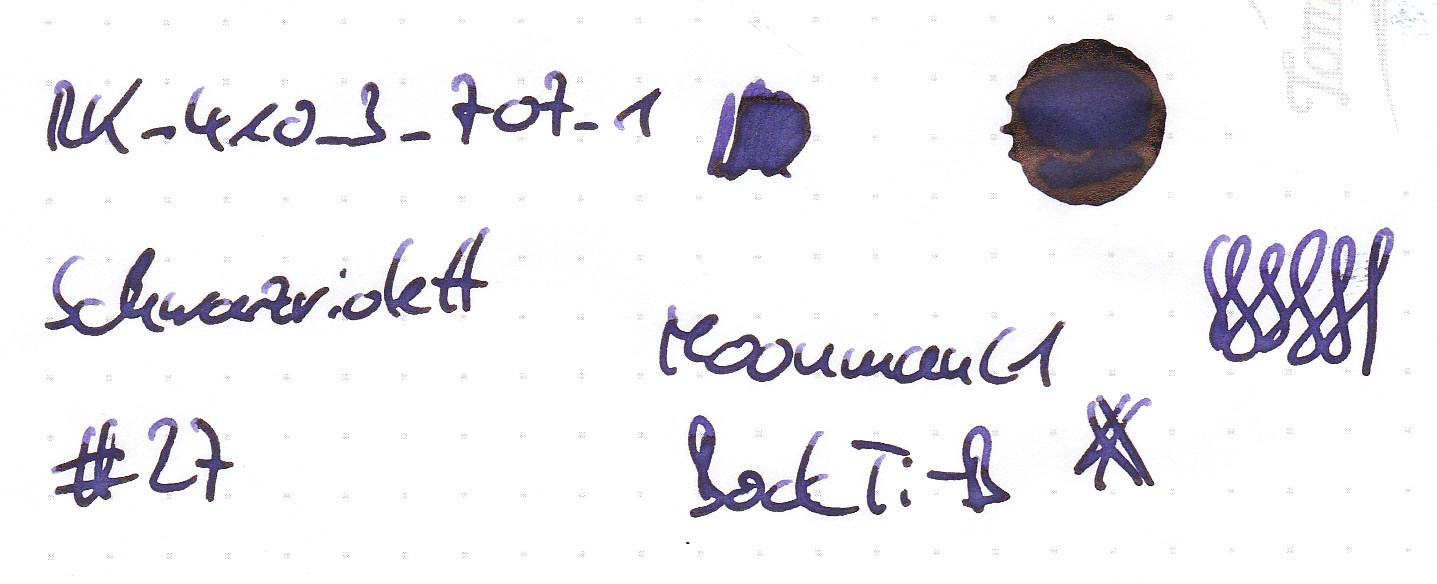 RK-4x0_3-707-1
Schwarzviolett
Moonman C1
#27
Bock Ti-B